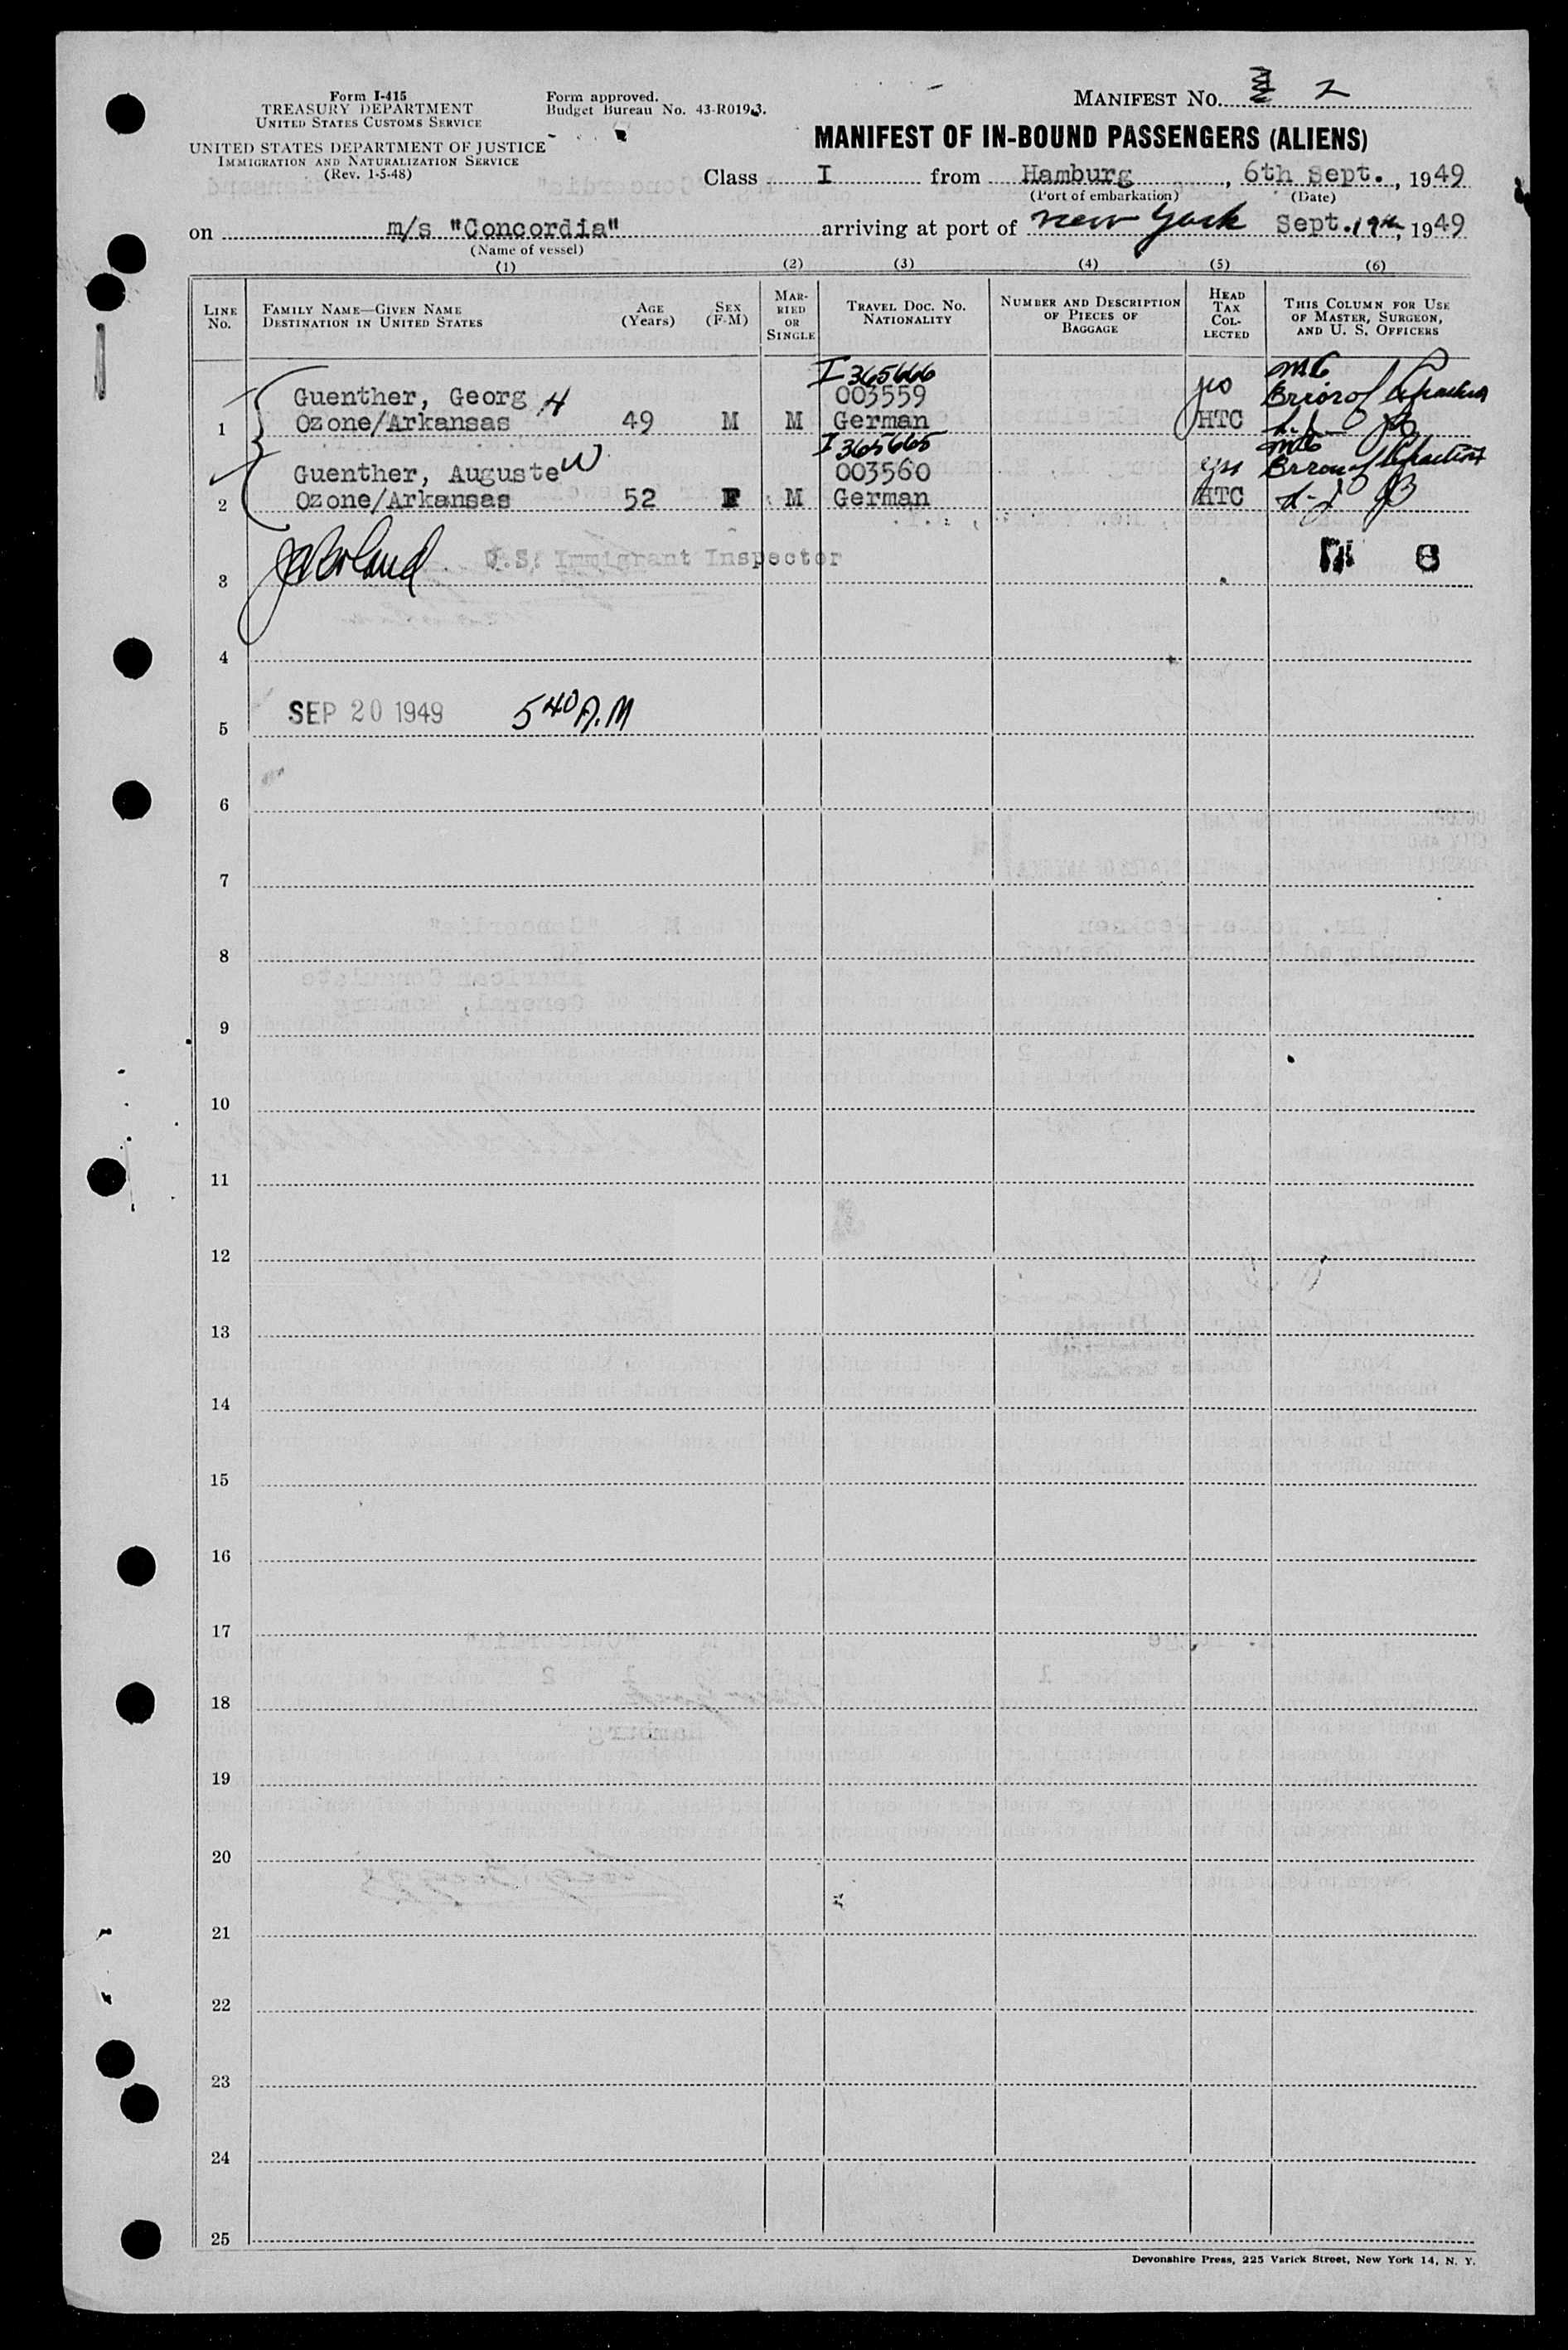 Form I-415
TREASURY DEPARTMENT
UNITED STATES CUSTOMS SERVICE
UNITED STATES DEPARTMENT OF JUSTICE
IMMIGRATION AND NATURALIZATION SERVICE
(Rev. 1-5-48)
Form approved.
Budget Bureau No. 43-R019.3.
MANIFEST NO. 2
MANIFEST OF IN-BOUND PASSENGERS (ALIENS)
Class I from Hamburg, 6th Sept., 1949
(Port of embarkation) (Date)
on m/s "Concordia" arriving at port of New York Sept. 19th, 1949
(Name of vessel)
(1) (2) (3) (4) (5) (6)
LINE NO.
FAMILY NAME—GIVEN NAME
DESTINATION IN UNITED STATES
AGE (Years)
SEX (F-M)
MARRIED OR SINGLE
TRAVEL DOC. NO.
NATIONALITY
NUMBER AND DESCRIPTION OF PIECES OF BAGGAGE
HEAD TAX COLLECTED
THIS COLUMN FOR USE OF MASTER, SURGEON, AND U. S. OFFICERS
I 365666
Guenther, Georg H 003559
1 Ozone/Arkansas 49 M M German HTC
I 365665
Guenther, Auguste W 003560
2 Ozone/Arkansas 52 F M German HTC
U.S. Immigrant Inspector
3
4
SEP 20 1949 5 40 A.M
5
6
7
8
9
10
11
12
13
14
15
16
17
18
19
20
21
22
23
24
25
Devonshire Press, 225 Varick Street, New York 14, N. Y.